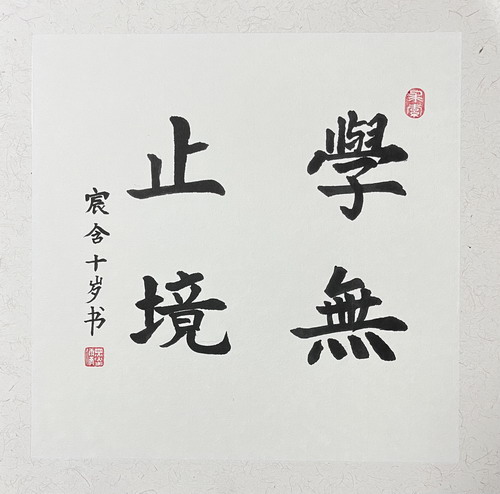 學無
止境
宸含十岁书